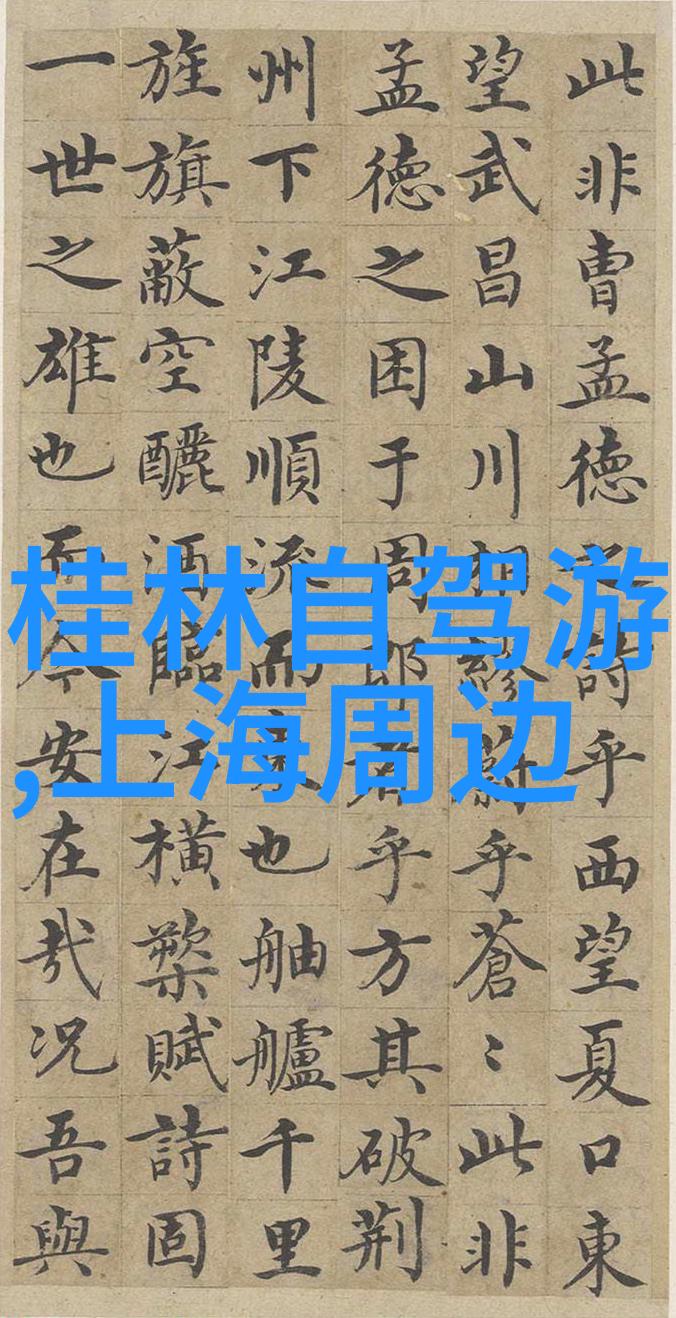 此非曹孟德之詩乎西望夏口東
望武昌山川相繆蔚乎蒼〻此非
孟德之困于周郎者乎方其破荆
州下江陵順流而東也舳艫千里
旌旗蔽空釃酒臨江横槊賦詩固
一世之雄也而今安在哉况吾與
桂林自驾游
,上海周边